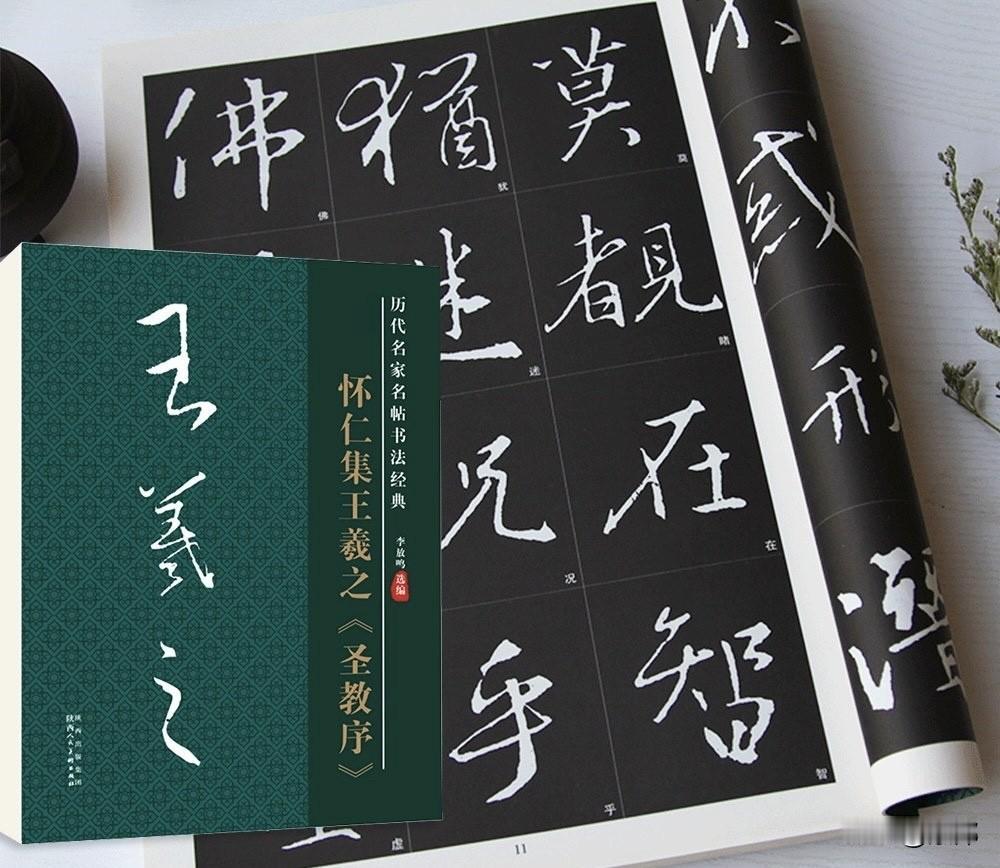 王羲之
历代名家名帖书法经典
李放鸣
选编
怀仁集王羲之《圣教序》
陕西出版集团
陕西人民美术出版社
莫
睹
在
智
犹
迷
况
乎
佛
虚
莫
覩
在
智
猶
迷
况
乎
佛
惑
形
潜
11